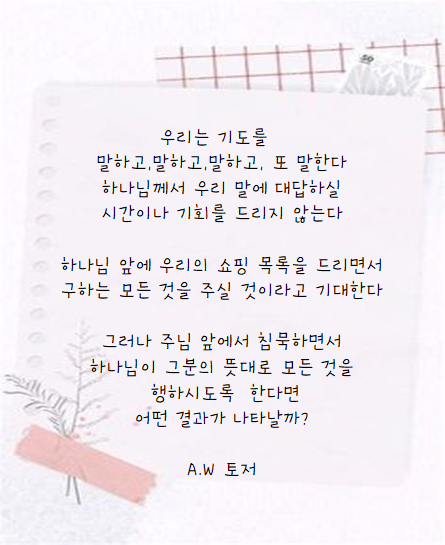 50
우리는 기도를
말하고,말하고,말하고, 또 말한다
하나님께서 우리 말에 대답하실
시간이나 기회를 드리지 않는다
하나님 앞에 우리의 쇼핑 목록을 드리면서
구하는 모든 것을 주실 것이라고 기대한다
그러나 주님 앞에서 침묵하면서
하나님이 그분의 뜻대로 모든 것을
행하시도록 한다면
어떤 결과가 나타날까?
A.W 토저